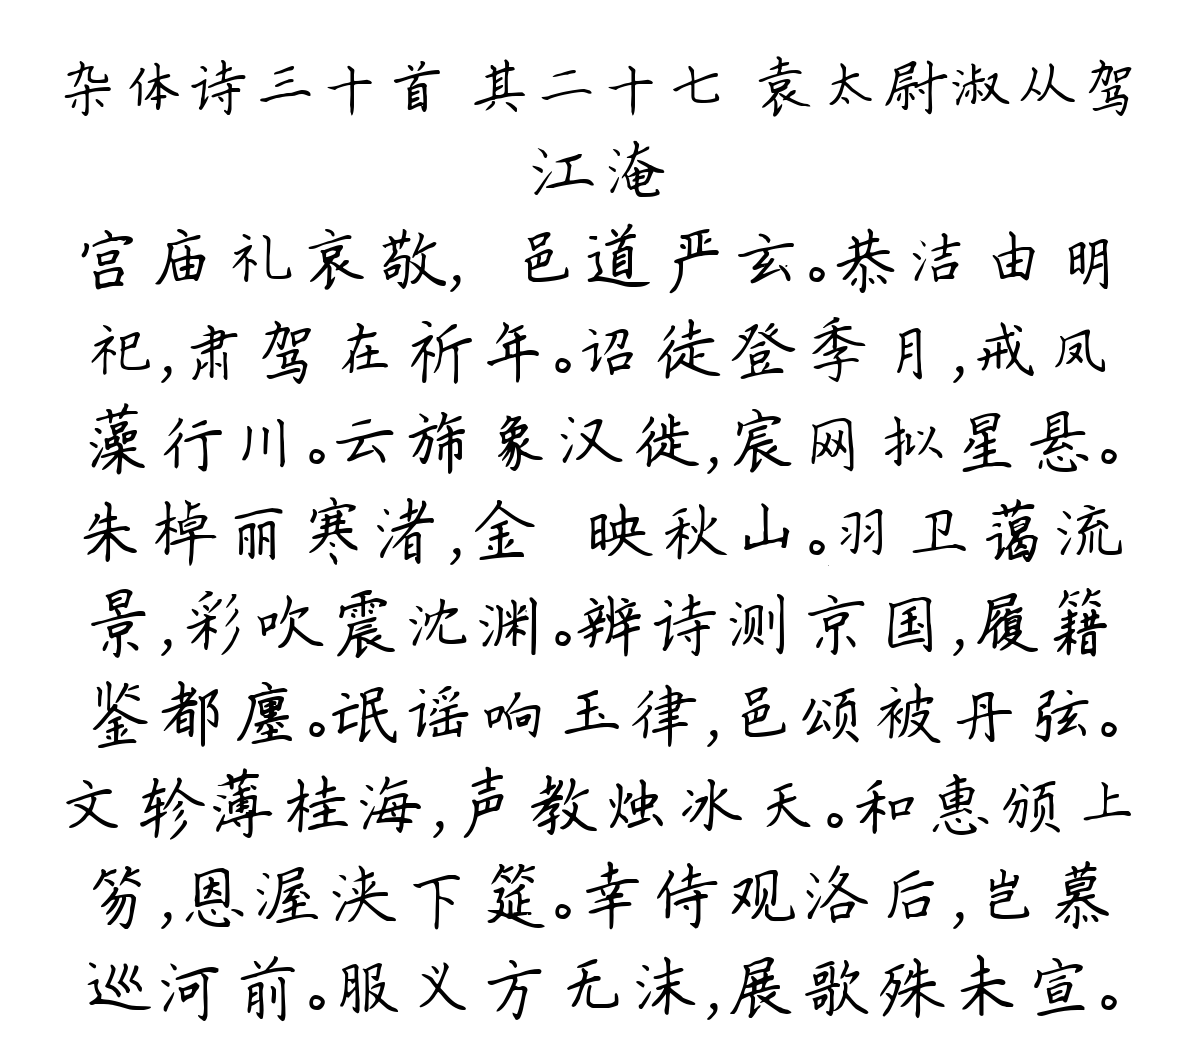 杂体诗三十首 其二十七 袁太尉淑从驾
江淹
宫庙礼哀敬, 邑道严玄。恭洁由明
祀,肃驾在祈年。诏徒登季月,戒凤
藻行川。云斾象汉徙,宸网拟星悬。
朱棹丽寒渚,金 映秋山。羽卫蔼流
景,彩吹震沈渊。辨诗测京国,履籍
鉴都廛。氓谣响玉律,邑颂被丹弦。
文轸薄桂海,声教烛冰天。和惠颁上
笏,恩渥浃下筵。幸侍观洛后,岂慕
巡河前。服义方无沫,展歌殊未宣。